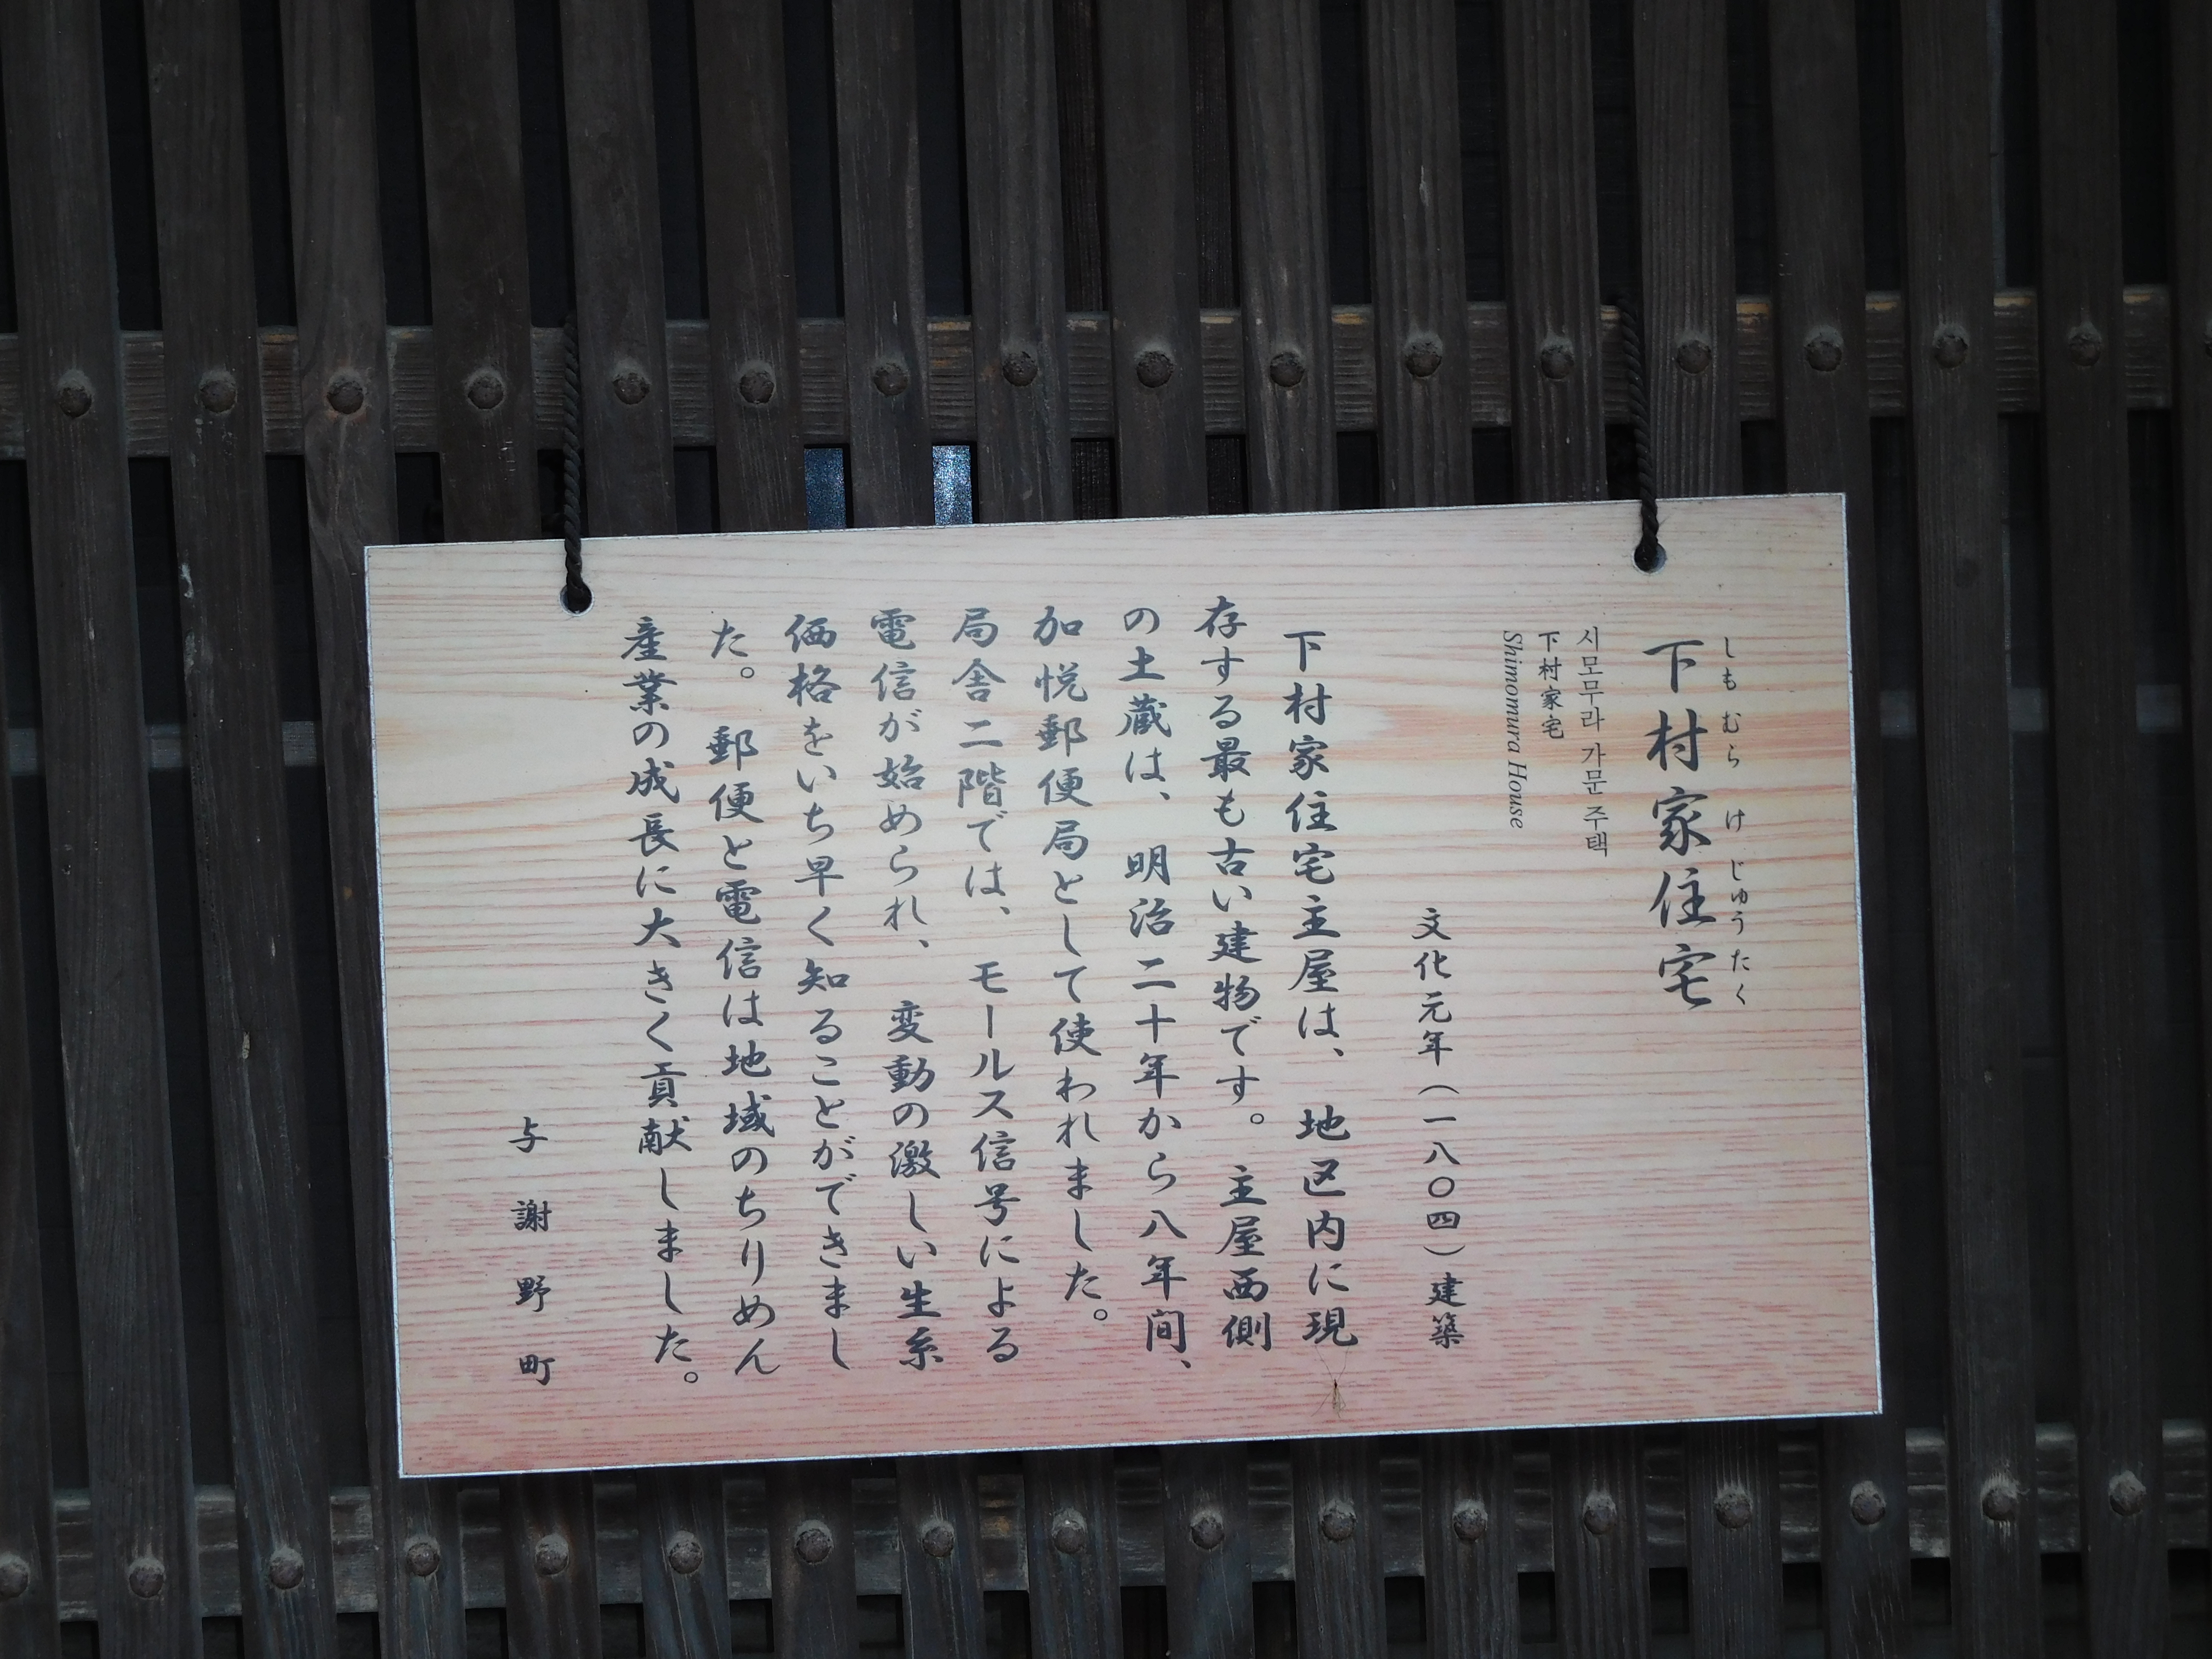 しもむらけじゅうたく
下村家住宅
시모무라 가문 주택
下村家宅
Shimomura House
文化元年（一八〇四）建築
下村家住宅主屋は、地区内に現
存する最も古い建物です。主屋西側
の土蔵は、明治二十年から八年間、
加悦郵便局として使われました。
局舎二階では、モールス信号による
電信が始められ、変動の激しい生糸
価格をいち早く知ることができまし
た。郵便と電信は地域のちりめん
産業の成長に大きく貢献しました。
与謝野町